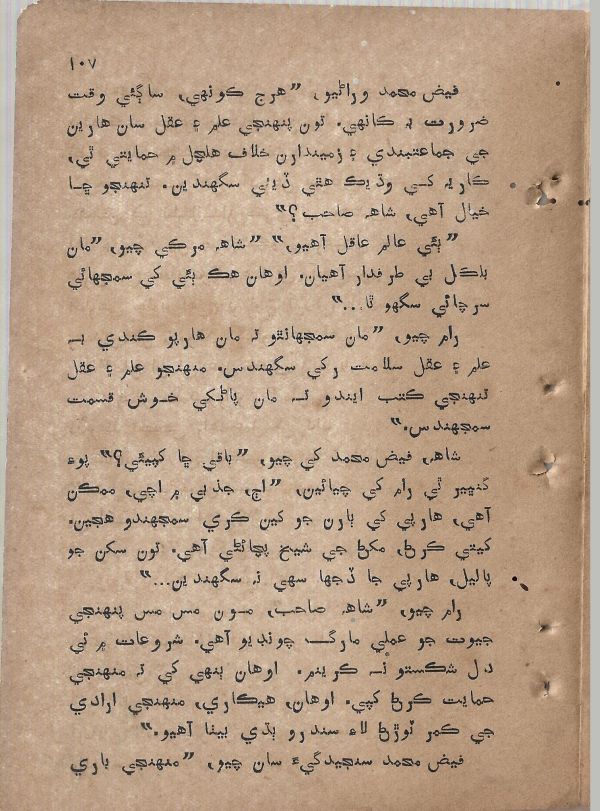 ۱۰۷
فيض محمد وراڻيو، ”هرج ڪونهي، ساڳئي وقت
ضرورت به ڪانهي. تون پنهنجي علم ۽ عقل سان هارين
جي جماعتبندي ۽ زميندارن خلاف هلچل ۾ حمايتي ٿي،
ڪاريه کي وڌيڪ هٿي ڏيئي سگهندين. تنهنجو ڇا
خيال آهي، شاهه صاحب؟“
”ٻئي عالم عاقل آهيو،“ ”شاهه مرڪي چيو، ”مان
باڪل بي طرفدار آهيان. اوهان هڪ ٻئي کي سمجهائي
سرچائي سگهو ٿا...“
رام چيو، ”مان سمجهانٿو ته مان هارپو ڪندي به
علم ۽ عقل سلامت رکي سگهندس. منهنجو علم ۽ عقل
تنهنجي ڪتب ايندو ته مان پاڻکي خوش قسمت
سمجهندس.“
شاهه، فيض محمد کي چيو، ”باقي ڇا کپيئي؟“ پوءِ
گنڀير ٿي رام کي چيائين، ”اڄ، جذبي ۾ اچي، ممڪن
آهي، هارپي کي ٻارن جو کين ڪري سمجهندو هجين.
کيتي ڪرڻ، مکڻ جي شيخ پچائڻي آهي. تون سکن جو
پاليل، هارپي جا ڏجها سهي نه سگهندين...“
رام چيو، ”شاهه صاحب، مون مس مس پنهنجي
جيوت جو عملي مارگ چونڊيو آهي. شروعات ۾ ئي
دل شڪستو نه ڪرينم. اوهان ٻنهي کي ته منهنجي
حمايت ڪرڻ کپي. اوهان، هيڪاري، منهنجي ارادي
جي ڪمر ٽوڙڻ لاءِ سندرو ٻڌي بيٺا آهيو.“
فيض محمد سنجيدگيءَ سان چيو، ”منهنجي باري